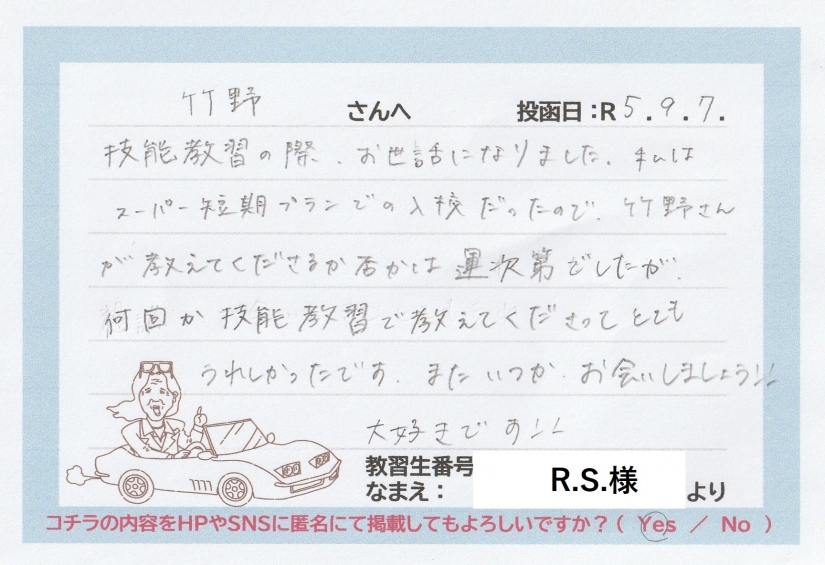 竹野 さんへ 投函日：R5.9.7.
技能教習の際、お世話になりました。私は
スーパー短期プランでの入校だったので、竹野さん
が教えてくださるか否かは運次第でしたが、
何回か技能教習で教えてくださってとても
うれしかったです。またいつか、お会いしましょう!!
大好きです!!
教習生番号
なまえ： R.S.様 より
コチラの内容をHPやSNSに匿名にて掲載してもよろしいですか？( Yes ／ No )